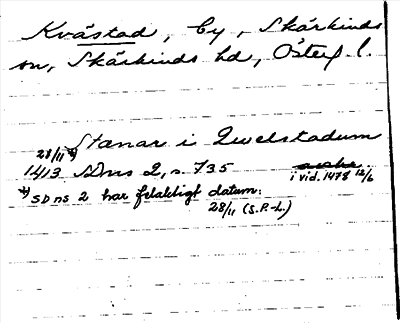 Kvästad, by, Skärkinds
sn, Skärkinds hd, Österg. l.
Stanar i Quelstadum
28/11 *)
1413 SDns 2, s. 735
avskr.
i vid. 1478 12/6
*) SDns 2 har felaktigt datum:
28/11 (S.P.-L.)